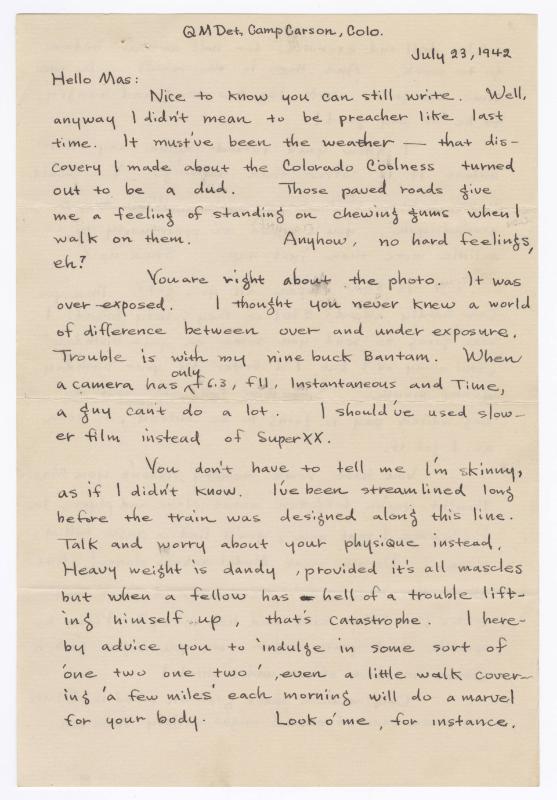 QM Det, Camp Carson, Colo.
July 23, 1942
Hello Mas:
Nice to know you can still write. Well,
anyway I didn't mean to be preacher like last
time. It must've been the weather — that dis-
covery I made about the Colorado Coolness turned
out to be a dud. Those paved roads give
me a feeling of standing on chewing gums when I
walk on them. Anyhow, no hard feelings,
eh?
You are right about the photo. It was
over-exposed. I thought you never knew a world
of difference between over and under exposure.
Trouble is with my nine buck Bantam. When
a camera has only f6.3, f11, Instantaneous and Time,
a guy can't do a lot. I should've used slow-
er film instead of Super XX.
You don't have to tell me I'm skinny,
as if I didn't know. I've been streamlined long
before the train was designed along this line.
Talk and worry about your physique instead.
Heavy weight is dandy, provided it's all mascles
but when a fellow has hell of a trouble lift-
ing himself up, that's catastrophe. I here-
by advice you to 'indulge in some sort of
'one two one two', even a little walk cover-
ing 'a few miles' each morning will do a marvel
for your body. Look o' me, for instance.